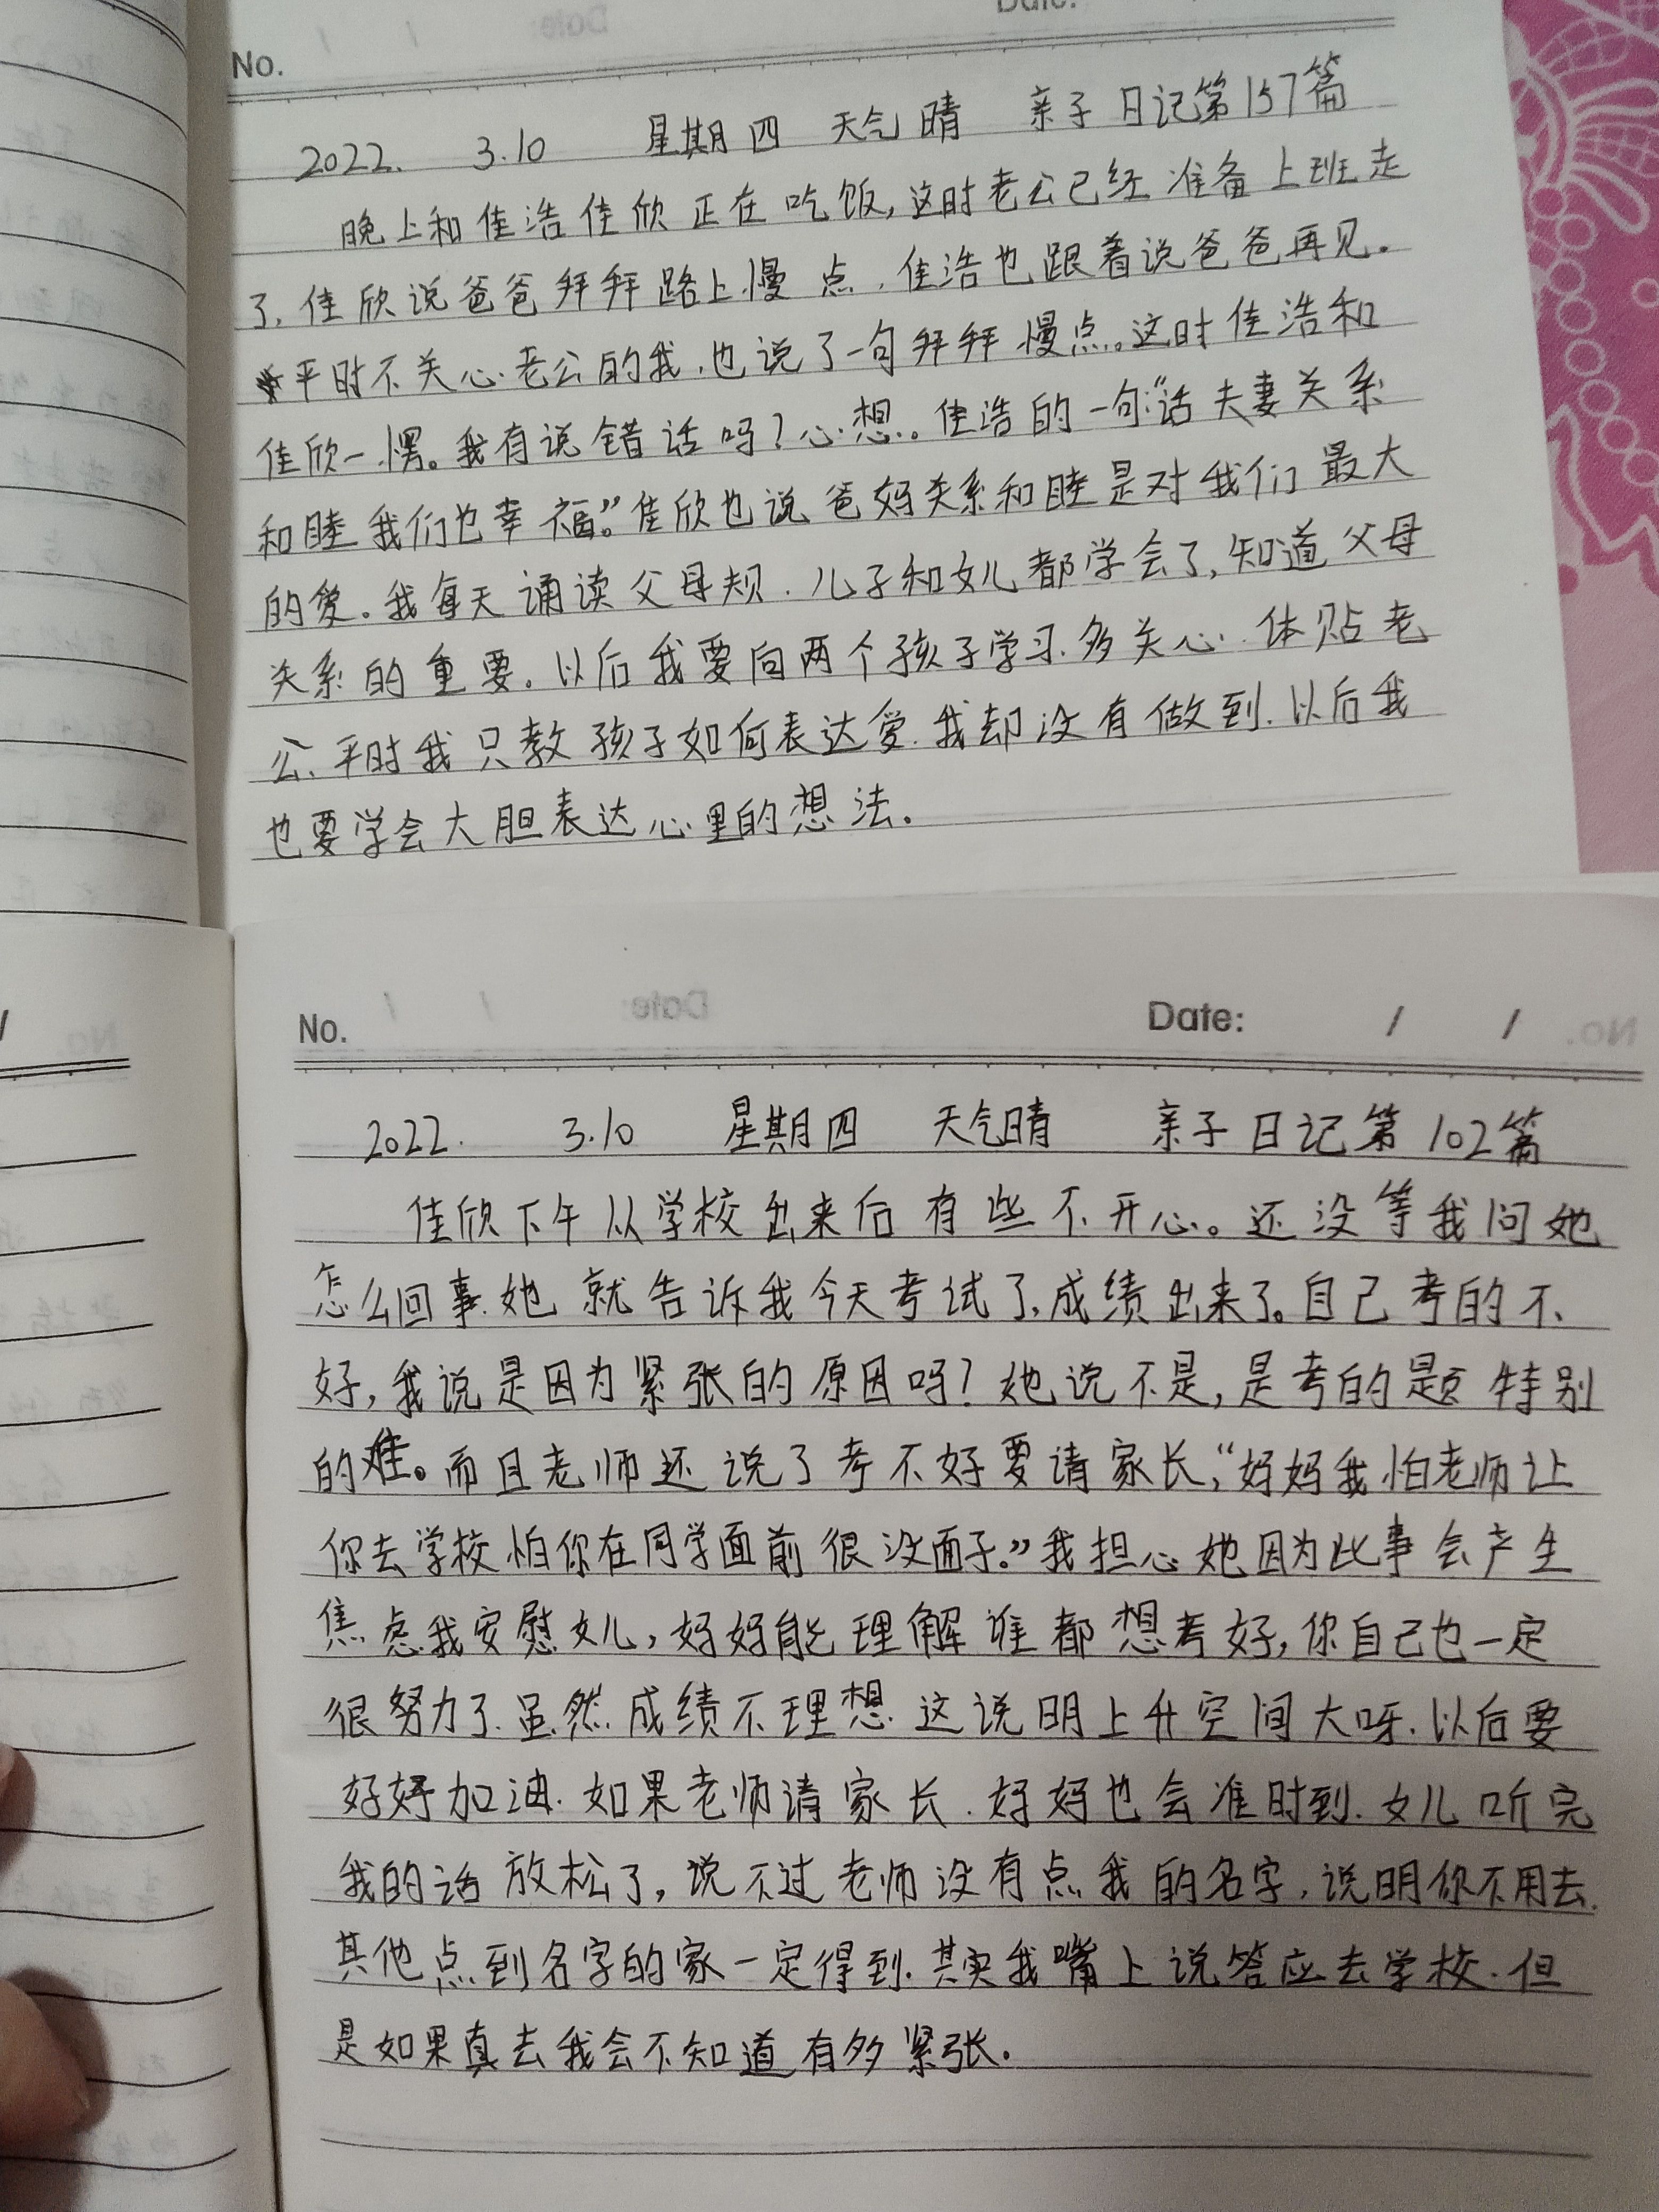 Date:
No.
2022. 3.10 星期四 天气晴 亲子日记第157篇
晚上和佳浩佳欣正在吃饭,这时老公已经准备上班走
了.佳欣说爸爸拜拜路上慢点.佳浩也跟着说爸爸再见.
平时不关心老公的我.也说了一句拜拜慢点。这时佳浩和
佳欣一愣。我有说错话吗?心想。佳浩的一句“话夫妻关系
和睦我们也幸福。”佳欣也说爸妈关系和睦是对我们最大
的爱.我每天诵读父母规.儿子和女儿都学会了,知道父母
关系的重要.以后我要向两个孩子学习.多关心.体贴老
公、平时我只教孩子如何表达爱.我却没有做到.以后我
也要学会大胆表达心里的想法.
No. Date: / /
2022. 3.10 星期四 天气晴 亲子日记第102篇
佳欣下午从学校出来后有些不开心。还没等我问她
怎么回事.她就告诉我今天考试了,成绩出来了。自己考的不
好,我说是因为紧张的原因吗?她说不是,是考的题特别
的难。而且老师还说了考不好要请家长,“妈妈我怕老师让
你去学校怕你在同学面前很没面子。”我担心她因为此事会产生
焦虑我安慰女儿,妈妈能理解谁都想考好,你自己也一定
很努力了.虽然成绩不理想.这说明上升空间大呀.以后要
好好加油.如果老师请家长.妈妈也会准时到.女儿听完
我的话放松了,说不过老师没有点我的名字,说明你不用去.
其他点到名字的家一定得到.其实我嘴上说答应去学校.但
是如果真去我会不知道有多紧张.